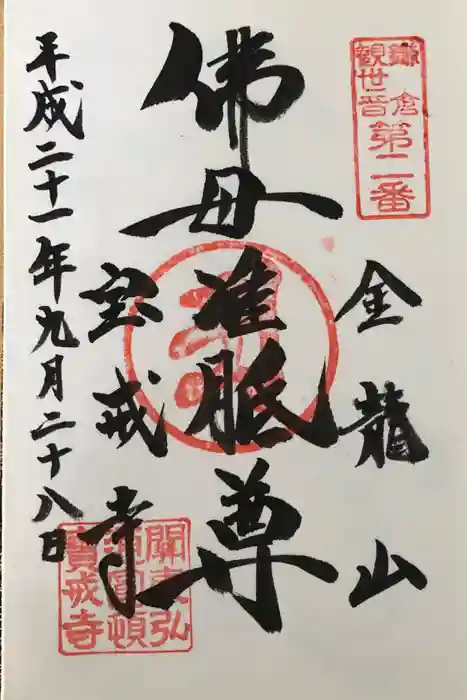 鎌倉
観世音
第二番
金龍山
佛母准胝尊
宝戒寺
平成二十一年九月二十八日
寳戒寺